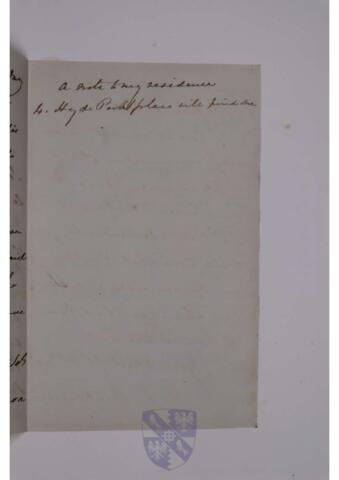 A note to my residence
4. Hyde Park place will find me